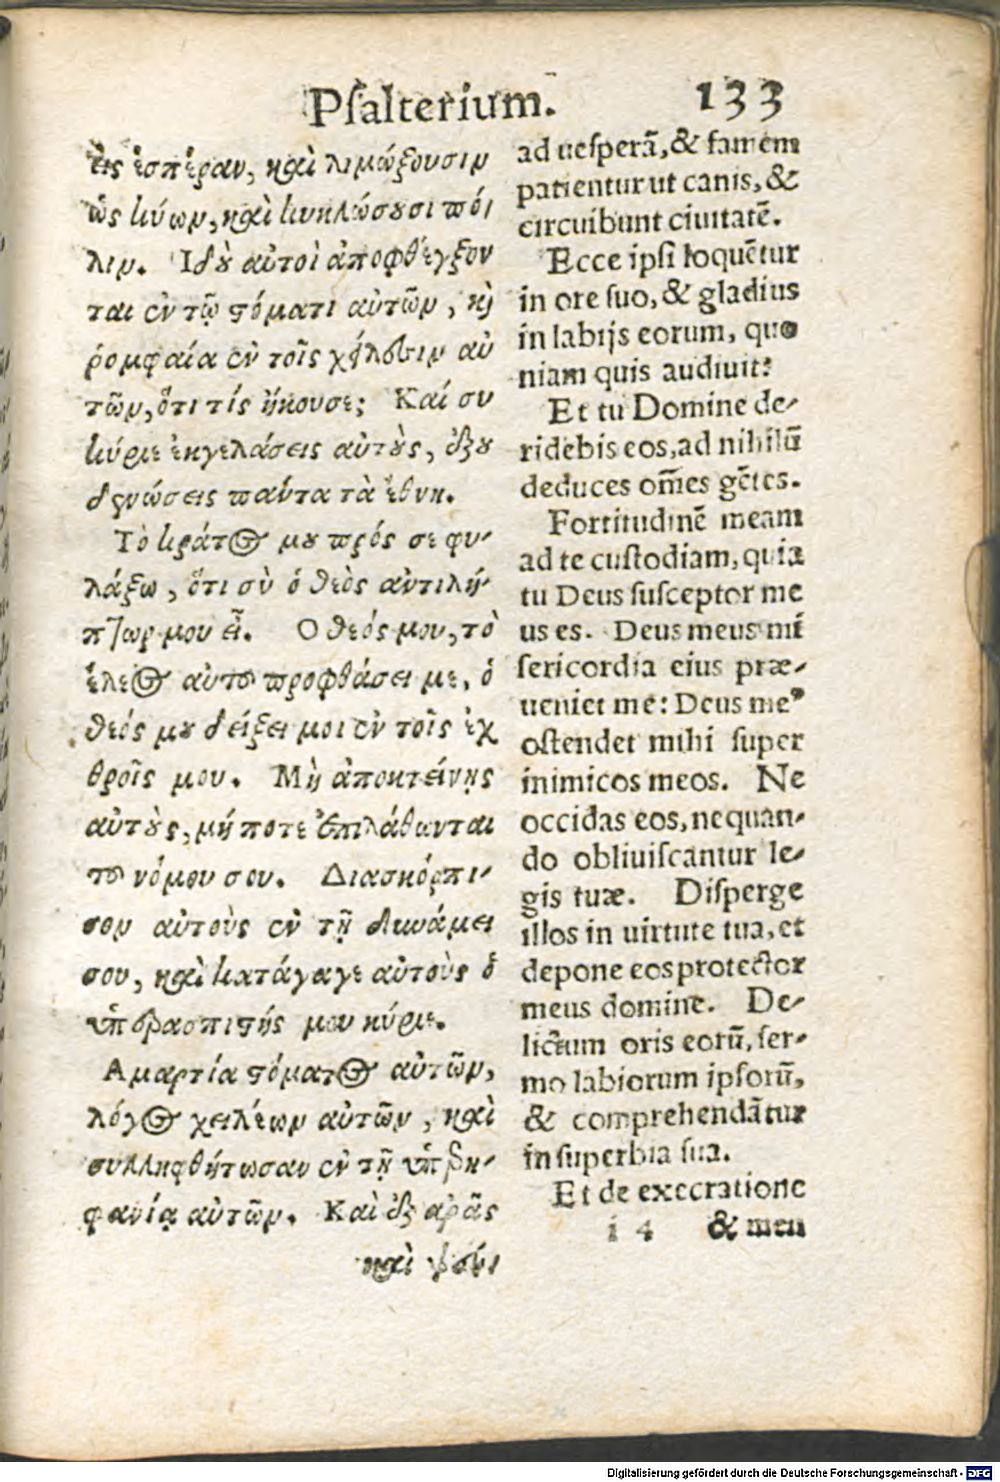 Psalterium. 133
εἰς ἑσπέραν, καὶ λιμώξουσιν
ὡς κύων, καὶ κυκλώσουσι πό-
λιν. Ιδοὺ αὐτοὶ ἀποφθέγξον
ται ἐν τῷ στόματι αὐτῶν, καὶ
ῥομφαία ἐν τοῖς χείλεσιν αὐ
τῶν, ὅτι τίς ἤκουσε; Καί συ
κύριε ἐκγελάσεις αὐτοὺς, ἐξου
δενώσεις παύτα τὰ ἔθνη.
Τὸ κράτος μου πρός σε φυ-
λάξω, ὅτι σὺ ὁ θεὸς ἀντιλή-
πτωρ μου εἶ. Ο θεός μου, τὸ
ἔλεος αὐτοῦ προφθάσει με, ὁ
θεός μου δείξει μοι ἐν τοῖς ἐχ
θροῖς μου. Μὴ ἀποκτείνῃς
αὐτοὺς, μή ποτε ἐπιλάθωνται
τοῦ νόμου σου. Διασκόρπι-
σον αὐτοὺς ἐν τῇ δυνάμει
σου, καὶ κατάγαγε αὐτοὺς ὁ
ὑπερασπιστής μου κύριε.
Αμαρτία στόματος αὐτῶν,
λόγος χειλέων αὐτῶν, καὶ
συλληφθήτωσαν ἐν τῇ ὑπερη-
φανίᾳ αὐτῶν. Καὶ ἐξ αρᾶς
καὶ ψεύ-
ad uesperã, & famem
patientur ut canis, &
circuibunt ciuitatẽ.
Ecce ipsi loquẽtur
in ore suo, & gladius
in labijs eorum, quo
niam quis audiuit?
Et tu Domine de-
ridebis eos, ad nihilũ
deduces om̃es gẽtes.
Fortitudinẽ meam
ad te custodiam, quia
tu Deus susceptor me
us es. Deus meus mi
sericordia eius præ-
ueniet me: Deus meꝰ
ostendet mihi super
inimicos meos. Ne
occidas eos, nequan-
do obliuiscantur le-
gis tuæ. Disperge
illos in uirtute tua, et
depone eos protector
meus domine. De-
lictum oris eorũ, ser-
mo labiorum ipsorũ,
& comprehendãtur
in superbia sua.
Et de execratione
i 4 & men
Digitalisierung gefördert durch die Deutsche Forschungsgemeinschaft - DFG